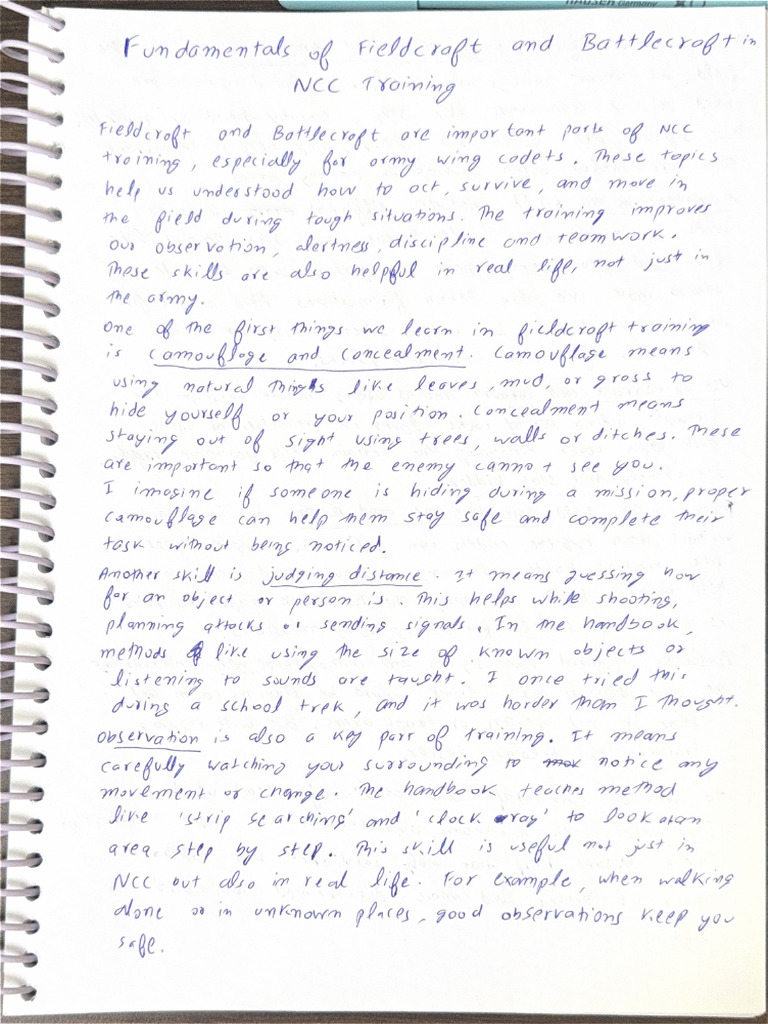 HAUSER Germany
Fundamentals of Fieldcraft and Battlecraft in
NCC Training
Fieldcraft and Battlecraft are important parts of NCC
training, especially for army wing cadets. These topics
help us understood how to act, survive, and move in
the field during tough situations. The training improves
our observation, alertness, discipline and teamwork.
These skills are also helpful in real life, not just in
the army.
One of the first things we learn in fieldcraft training
is camouflage and concealment. Camouflage means
using natural things like leaves, mud, or grass to
hide yourself or your position. Concealment means
staying out of sight using trees, walls or ditches. These
are important so that the enemy cannot see you.
I imagine if someone is hiding during a mission, proper
camouflage can help them stay safe and complete their
task without being noticed.
Another skill is judging distance. It means guessing how
far an object or person is. This helps while shooting,
planning attacks or sending signals. In the handbook,
methods like using the size of known objects or
listening to sounds are taught. I once tried this
during a school trek, and it was harder than I thought.
Observation is also a key part of training. It means
carefully watching your surrounding to notice any
movement or change. The handbook teaches method
like 'strip searching' and 'clock ray' to look at an
area step by step. This skill is useful not just in
NCC but also in real life. For example, when walking
alone or in unknown places, good observations keep you
safe.